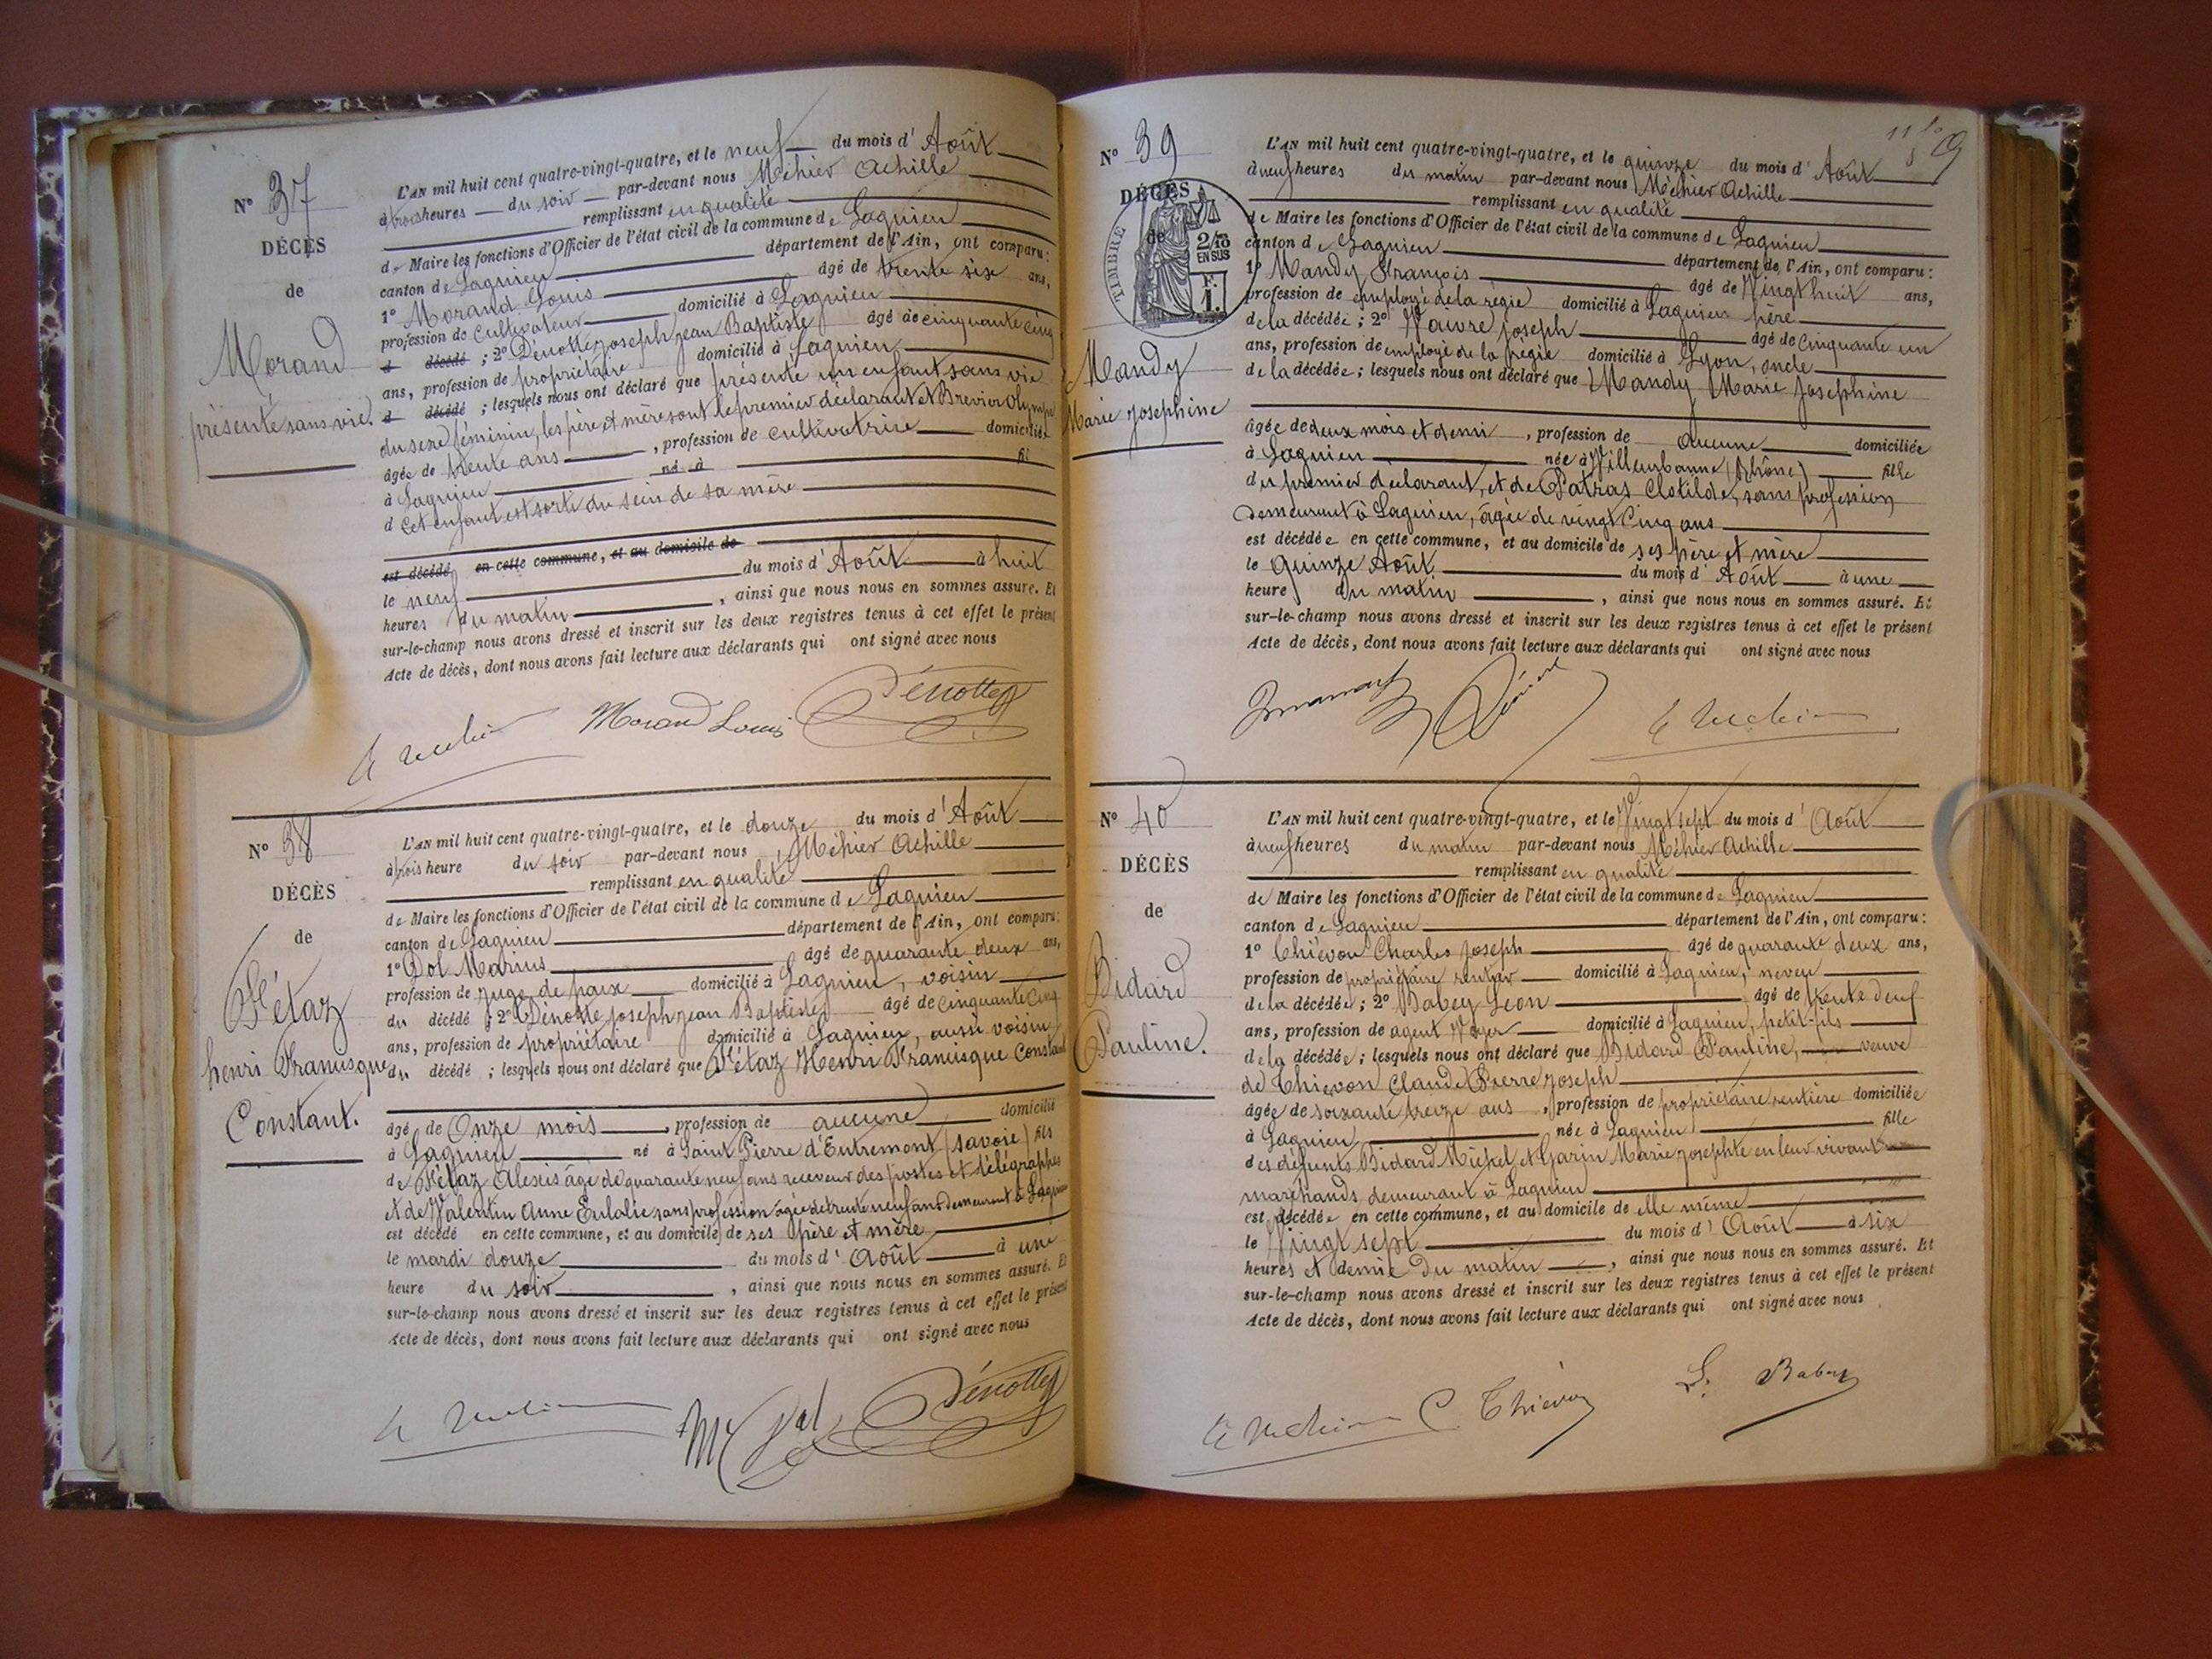 N° 37
DÉCÈS
de
Morand
présenté sans vie.
L'AN mil huit cent quatre-vingt-quatre, et le neuf du mois d'Août
à trois heures du soir par-devant nous Méhier Achille
remplissant en qualité
de Maire les fonctions d'Officier de l'état civil de la commune de Lagnieu
canton de Lagnieu département de l'Ain, ont comparu :
1° Morand Louis âgé de trente six ans,
profession de cultivateur domicilié à Lagnieu
d décédé ; 2° Dénotte joseph jean Baptiste âgé de cinquante cinq
ans, profession de propriétaire domicilié à Lagnieu
d décédé ; lesquels nous ont déclaré que présenté un enfant sans vie
du sexe féminin, les père et mère sont le premier déclarant et Brevier Olympe
âgée de trente ans , profession de cultivatrice domiciliée
à Lagnieu né à fil
d cet enfant est sorti du sein de sa mère
est décédé en cette commune, et au domicile de
le neuf du mois d'Août à huit
heures du matin , ainsi que nous nous en sommes assuré. Et
sur-le-champ nous avons dressé et inscrit sur les deux registres tenus à cet effet le présent
Acte de décès, dont nous avons fait lecture aux déclarants qui ont signé avec nous
Morand Louis Dénotte
N° 38
DÉCÈS
de
Pétaz
henri Francisque
Constant.
L'AN mil huit cent quatre-vingt-quatre, et le douze du mois d'Août
à trois heure du soir par-devant nous Méhier Achille
remplissant en qualité
de Maire les fonctions d'Officier de l'état civil de la commune de Lagnieu
canton de Lagnieu département de l'Ain, ont comparu :
1° Dol Marius âgé de quarante deux ans,
profession de juge de paix domicilié à Lagnieu, voisin
du décédé ; 2° Dénotte joseph jean Baptiste âgé de cinquante cinq
ans, profession de propriétaire domicilié à Lagnieu, aussi voisin
du décédé ; lesquels nous ont déclaré que Pétaz Henri Francisque Constant
âgé de Onze mois , profession de aucune domicilié
à Lagnieu né à Saint Pierre d'Entremont (savoie) fils
de Pétaz Alexis âgé de quarante neuf ans receveur des postes et télégraphes
et de Valentin Anne Eulalie sans profession âgée de trente neuf ans demeurant à Lagnieu
est décédé en cette commune, et au domicile de ses père et mère
le mardi douze du mois d'Août à une
heure du soir , ainsi que nous nous en sommes assuré. Et
sur-le-champ nous avons dressé et inscrit sur les deux registres tenus à cet effet le présent
Acte de décès, dont nous avons fait lecture aux déclarants qui ont signé avec nous
Dénotte
N° 39
DÉCÈS
de
TIMBRE
2/10
EN SUS
F.
1.
Mandy
Marie Josephine
L'AN mil huit cent quatre-vingt-quatre, et le quinze du mois d'Août
à neuf heures du matin par-devant nous Méhier Achille
remplissant en qualité
de Maire les fonctions d'Officier de l'état civil de la commune de Lagnieu
canton de Lagnieu département de l'Ain, ont comparu :
1° Mandy François âgé de Vingt huit ans,
profession de employé de la régie domicilié à Lagnieu père
de la décédée ; 2° Vaivre joseph âgé de cinquante un
ans, profession de employé de la régie domicilié à Lyon, oncle
de la décédée ; lesquels nous ont déclaré que Mandy Marie Josephine
âgée de deux mois et demi , profession de aucune domiciliée
à Lagnieu née à Villeurbanne (Rhône) fille
du premier déclarant, et de Patras Clotilde, sans profession
demeurant à Lagnieu, âgée de vingt cinq ans
est décédée en cette commune, et au domicile de ses père et mère
le quinze Août du mois d'Août à une
heure du matin , ainsi que nous nous en sommes assuré. Et
sur-le-champ nous avons dressé et inscrit sur les deux registres tenus à cet effet le présent
Acte de décès, dont nous avons fait lecture aux déclarants qui ont signé avec nous
N° 40
DÉCÈS
de
Bidard
Pauline.
L'AN mil huit cent quatre-vingt-quatre, et le Vingt sept du mois d'Août
à neuf heures du matin par-devant nous Méhier Achille
remplissant en qualité
de Maire les fonctions d'Officier de l'état civil de la commune de Lagnieu
canton de Lagnieu département de l'Ain, ont comparu :
1° Thiévon Charles Joseph âgé de quarante deux ans,
profession de propriétaire rentier domicilié à Lagnieu, neveu
de la décédée ; 2° Babey Léon âgé de trente deux
ans, profession de agent Voyer domicilié à Lagnieu, petit-fils
de la décédée ; lesquels nous ont déclaré que Bidard Pauline, veuve
de Thiévon Claude Pierre joseph
âgée de soixante treize ans , profession de propriétaire rentière domiciliée
à Lagnieu née à Lagnieu fille
des défunts Bidard Michel et Garin Marie josephte en leur vivant
marchands demeurant à Lagnieu
est décédée en cette commune, et au domicile de elle même
le Vingt sept du mois d'Août à six
heures et demie du matin , ainsi que nous nous en sommes assuré. Et
sur-le-champ nous avons dressé et inscrit sur les deux registres tenus à cet effet le présent
Acte de décès, dont nous avons fait lecture aux déclarants qui ont signé avec nous
C. Thiévon L. Babey